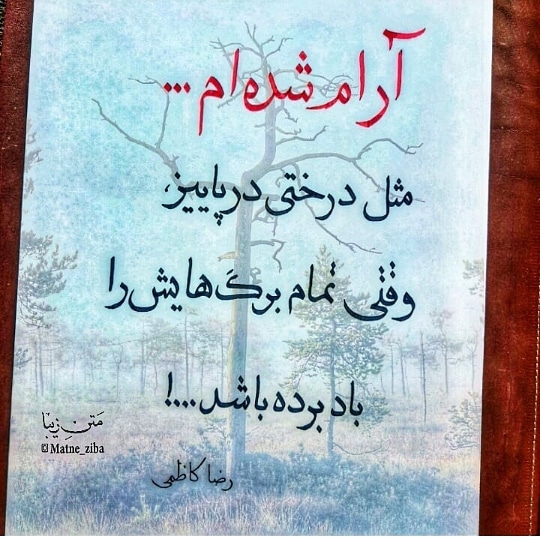 آرام شده ام...
مثل درختی در پاییز،
وقتی تمام برگ‌هایش را
باد برده باشد....!
رضا کاظمی
مَتنِ زیبا
@Matne_ziba